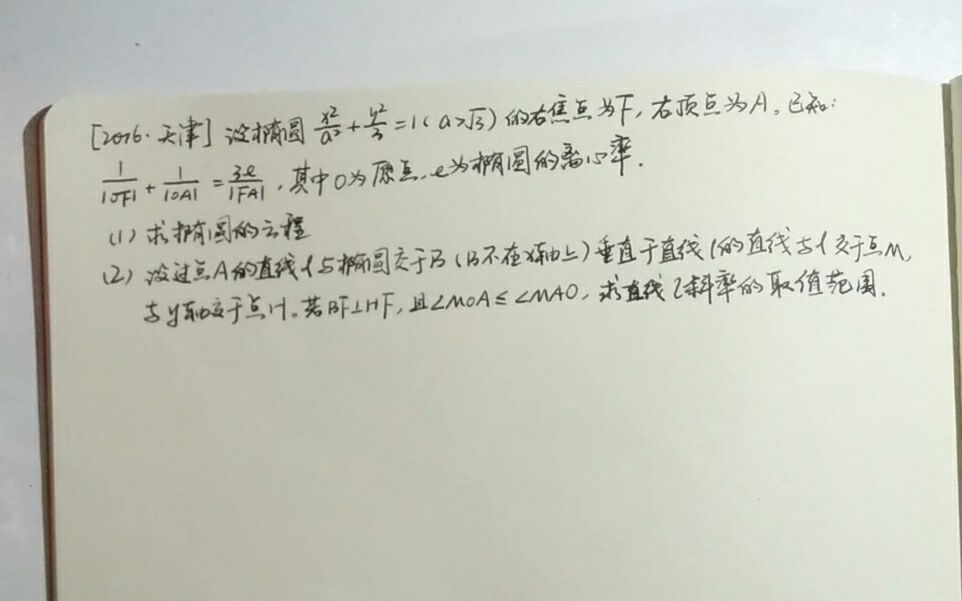 [2016·天津] 设椭圆 x²/a² + y²/3 = 1 ( a>√3 ) 的右焦点为F, 右顶点为A。已知:
1/|OF| + 1/|OA| = 3e/|FA| , 其中O为原点, e为椭圆的离心率.
(1) 求椭圆的方程
(2) 设过点A的直线l与椭圆交于B (B不在x轴上) 垂直于直线l的直线与l交于点M,
与y轴交于点H。若BF⊥HF, 且∠MOA≤∠MAO, 求直线l斜率的取值范围.